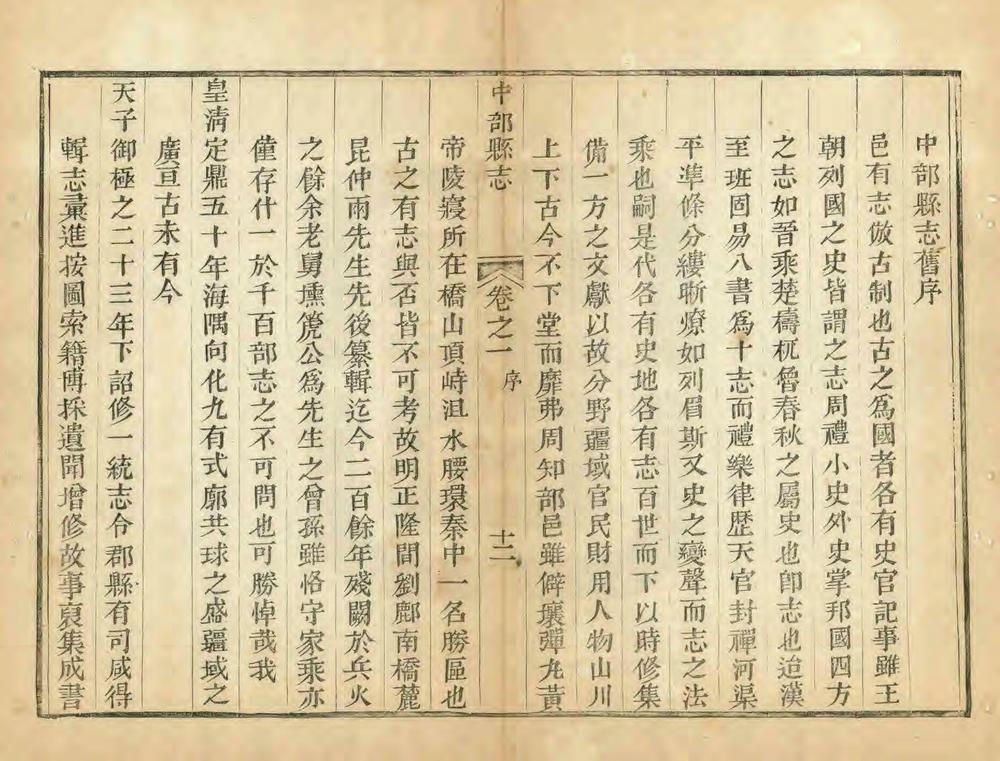 中部縣志舊序
邑有志倣古制也古之爲國者各有史官記事雖王
朝列國之史皆謂之志周禮小史外史掌邦國四方
之志如晉乘楚檮杌魯春秋之屬史也卽志也迨漢
至班固易八書爲十志而禮樂律歴天官封禪河渠
平準條分縷晰燎如列眉斯又史之變聲而志之法
乘也嗣是代各有史地各有志百世而下以時修集
備一方之文獻以故分野疆域官民財用人物山川
上下古今不下堂而靡弗周知部邑雖僻壤彈丸黃
中部縣志
卷之一
序
十二
帝陵寢所在橋山頂峙沮水腰環秦中一名勝區也
古之有志與否皆不可考故明正隆間劉鄜南橋麓
昆仲兩先生先後纂輯迄今二百餘年殘闕於兵火
之餘余老舅壎箎公爲先生之曾孫雖恪守家乘亦
僅存什一於千百部志之不可問也可勝悼哉我
皇清定鼎五十年海隅向化九有式廓共球之盛疆域之
廣亘古未有今
天子御極之二十三年下詔修一統志令郡縣有司咸得
輯志彙進按圖索籍博採遺聞增修故事裒集成書